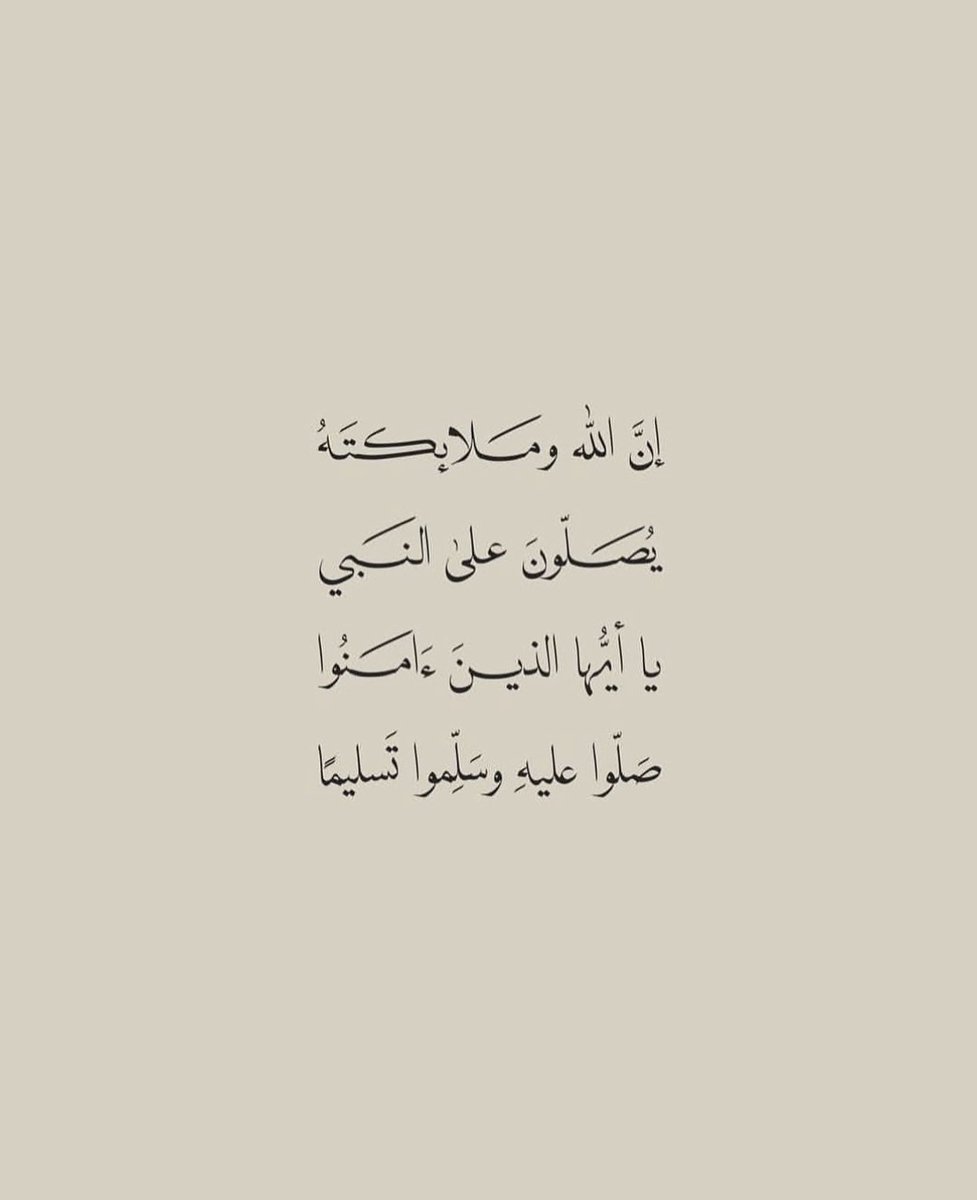 إنَّ الله ومَلاىٕكتَهُ
يُصَلّونَ علىٰ النَبي
يا أيُّها الذينَ ءَامَنُوا
صَلّوا عليهِ وسَلِّموا تَسليمًا